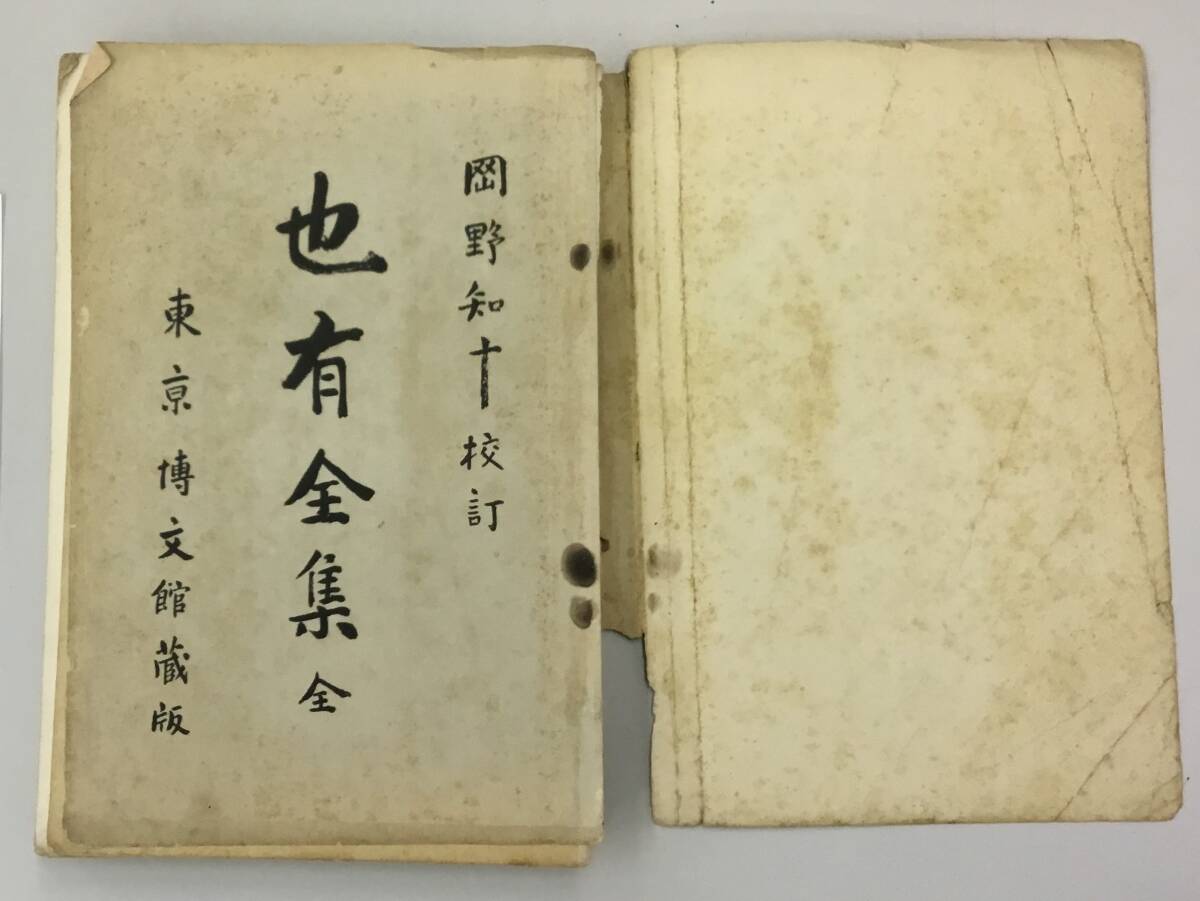 岡野知十校訂
也有全集 全
東京博文館蔵版